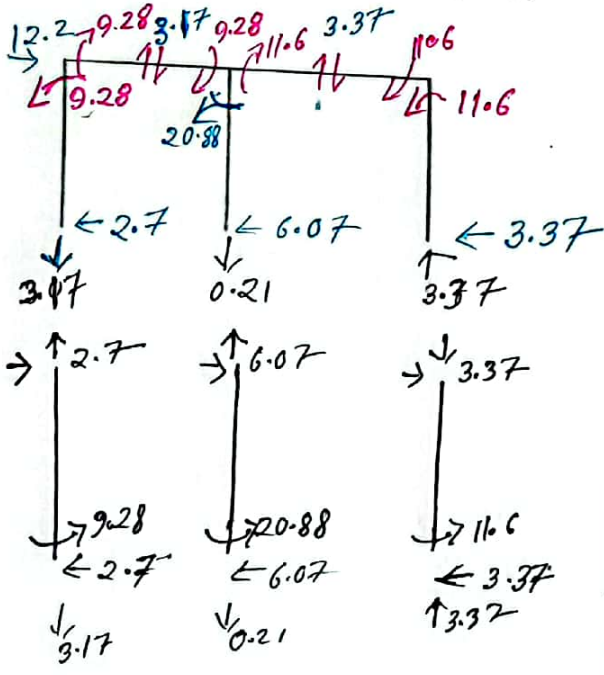 12.2 9.28 3.17 9.28 11.6 3.37 11.6
9.28 20.88 11.6
← 2.7 ← 6.07 ← 3.37
3.17 0.21 3.37
2.7 6.07 3.37
9.28 20.88 11.6
← 2.7 ← 6.07 ← 3.37
3.17 0.21 3.37